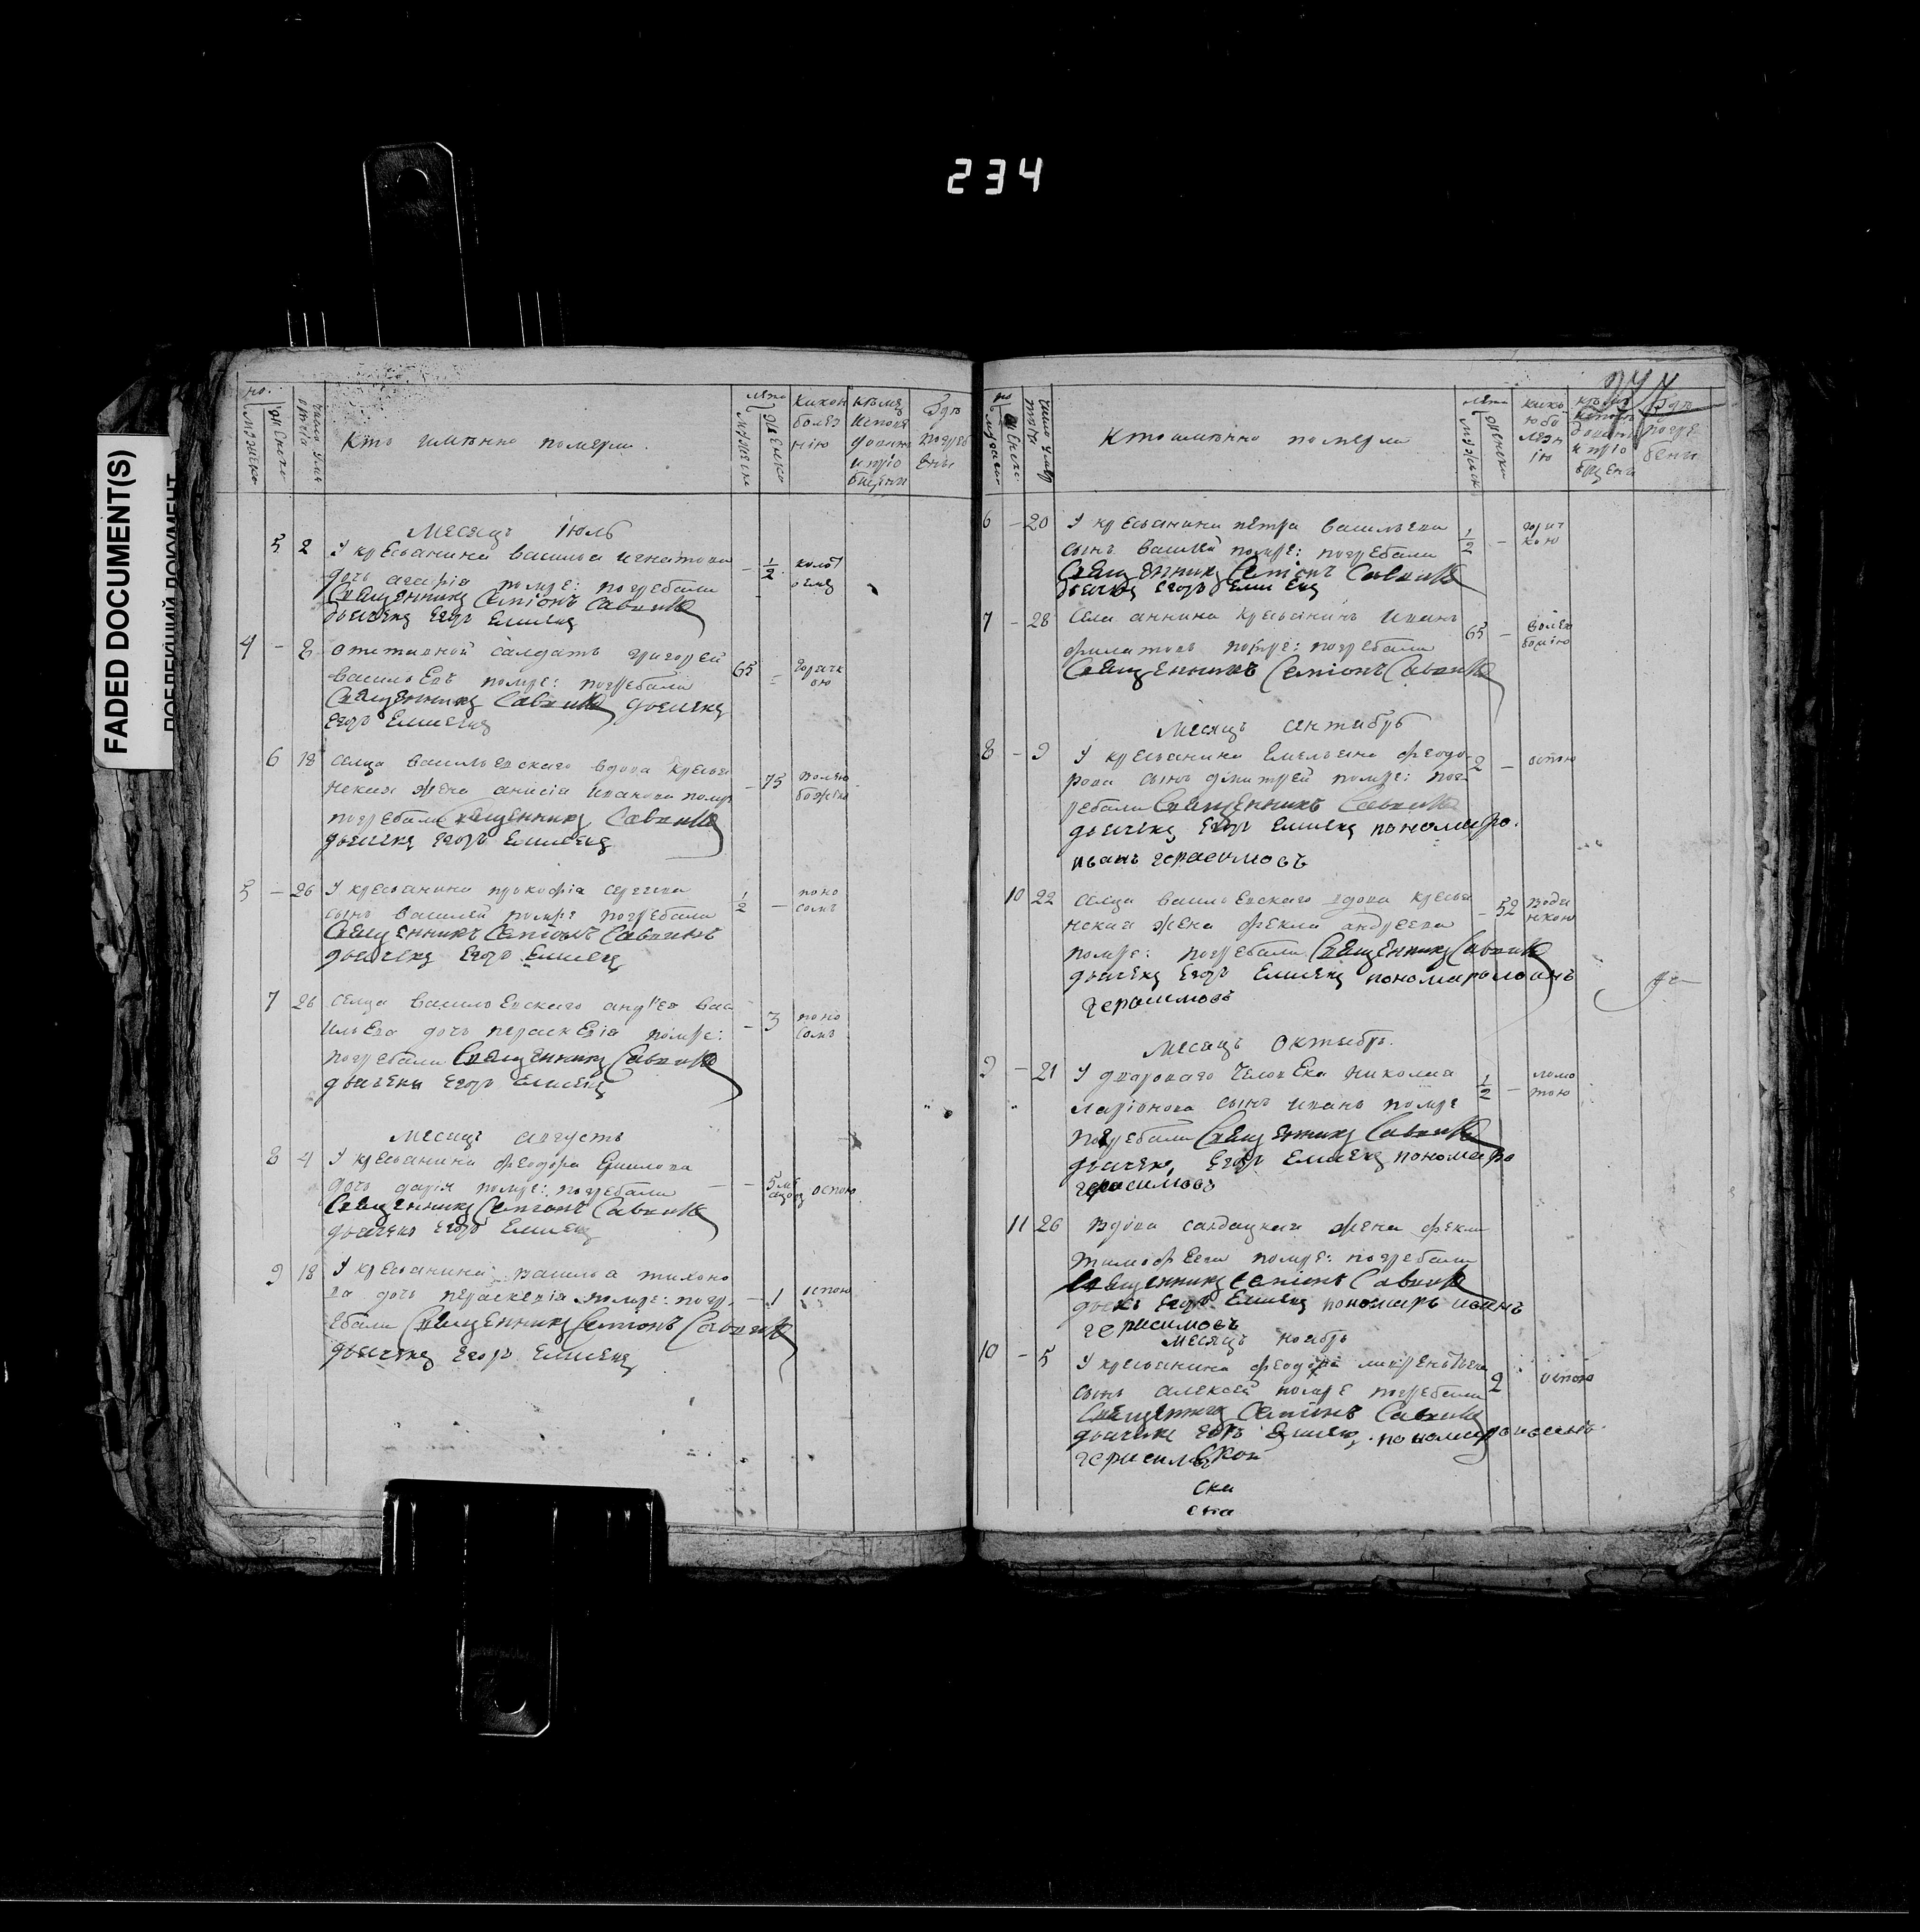 234
FADED DOCUMENT(S)
но.
лета
Кто имянно померли.
какою
болез
нію
кемъ
исповѣ
дованы
и пріо
бщены
гдѣ
погреб
ены
Месяцъ Іюль
5 2 У крестьянина василья игнатова
дочь помре: погребали
Священникъ Семіонъ Саввинъ
дьячекъ Егоръ Елисеевъ
1/2
4 - 8 отставной салдатъ григорей
васильевъ помре: погребали
Священникъ Саввинъ дьячекъ
Егоръ Елисеевъ
65 -
горячк
ою
6 18 селца васильевского вдова кресья
нская жена анисія иванова помре
погребали Священникъ Саввинъ
дьячекъ Егоръ Елисеевъ
- 75
5 - 26 У крестьянина прокофія сергеева
сынъ василей помре погребали
Священникъ Семіонъ Саввинъ
дьячекъ Егоръ Елисеевъ
1/2 -
поно
сомъ
7 26 селца васильевского андрея вас
ильева дочь параскевія помре:
погребали Священникъ Саввинъ
дьячекъ Егоръ Елисеевъ
- 3
поно
сомъ
Месяцъ августъ
8 4 У крестьянина феодора
дочь дарія помре: погребали
Священникъ Семіонъ Саввинъ
дьячекъ Егоръ Елисеевъ
- 5 ме
сяцовъ
оспою
9 18 У крестьянина василья тихоно
ва дочь параскевія помре: погр
ебали Священникъ Семіонъ Саввинъ
дьячекъ Егоръ Елисеевъ
- 1
оспою
но
лета
Кто имянно померли
какою
болезн
ію
гдѣ
погре
бены
6 - 20 У крестьянина петра васильева
сынъ василей помре: погребали
Священникъ Семіонъ Саввинъ
дьячекъ Егоръ Елисеевъ
1/2 -
горяч
кою
7 - 28 села аннина крестьянинъ иванъ
филатовъ помре: погребали
Священникъ Семіонъ Саввинъ
65 -
волею
божіею
Месяцъ сентябрь
8 - 9 У крестьянина емельяна феодо
рова сынъ димитрей помре: пог
ребали Священникъ Саввинъ
дьячекъ Егоръ Елисеевъ пономарь
иванъ герасимовъ
2 -
оспою
10 22 селца васильевского вдова кресья
нская жена фекла андреева
помре: погребали Священникъ Саввинъ
дьячекъ Егоръ Елисеевъ пономарь иванъ
герасимовъ
- 52
водя
нкою
Месяцъ октябрь.
9 - 21 У двороваго человека николая
ларіонова сынъ иванъ помре
погребали Священникъ Саввинъ
дьячекъ Егоръ Елисеевъ пономарь
герасимовъ
1/2 -
ломо
тою
11 26 вдова салдацкая жена фекла
тимофеева помре: погребали
Священникъ Семіонъ Саввинъ
Егоръ Елисеевъ пономарь иванъ
герасимовъ
Месяцъ ноябрь
10 - 5 У крестьянина феодора лаврентьева
сынъ алексей помре погребали
Священникъ Семіонъ Саввинъ
дьячекъ Егоръ Елисеевъ пономарь иванъ
2
оспою